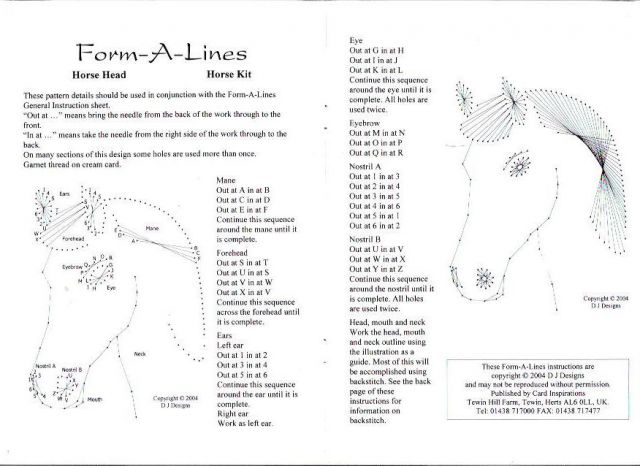 Form-A-Lines
Horse Head Horse Kit
These pattern details should be used in conjunction with the Form-A-Lines
General Instruction sheet.
“Out at ...” means bring the needle from the back of the work through to the
front.
“In at ...” means take the needle from the right side of the work through to the
back.
On many sections of this design some holes are used more than once.
Garnet thread on cream card.
Ears
Mane
Forehead
Eyebrow
Eye
Nostril A
Nostril B
Neck
Mouth
Copyright © 2004
D J Designs
Mane
Out at A in at B
Out at C in at D
Out at E in at F
Continue this sequence
around the mane until it
is complete.
Forehead
Out at S in at T
Out at U in at S
Out at V in at W
Out at X in at V
Continue this sequence
across the forehead until
it is complete.
Ears
Left ear
Out at 1 in at 2
Out at 3 in at 4
Out at 5 in at 6
Continue this sequence
around the ear until it is
complete.
Right ear
Work as left ear.
Eye
Out at G in at H
Out at I in at J
Out at K in at L
Continue this sequence
around the eye until it is
complete. All holes are
used twice.
Eyebrow
Out at M in at N
Out at O in at P
Out at Q in at R
Nostril A
Out at 1 in at 3
Out at 2 in at 4
Out at 3 in at 5
Out at 4 in at 6
Out at 5 in at 1
Out at 6 in at 2
Nostril B
Out at U in at V
Out at W in at X
Out at Y in at Z
Continue this sequence
around the nostril until it
is complete. All holes
are used twice.
Head, mouth and neck
Work the head, mouth
and neck outline using
the illustration as a
guide. Most of this will
be accomplished using
backstitch. See the back
page of these
instructions for
information on
backstitch.
Copyright © 2004
D J Designs
These Form-A-Lines instructions are
copyright © 2004 D J Designs
and may not be reproduced without permission.
Published by Card Inspirations
Tewin Hill Farm, Tewin, Herts AL6 0LL, UK.
Tel: 01438 717000 FAX: 01438 717477